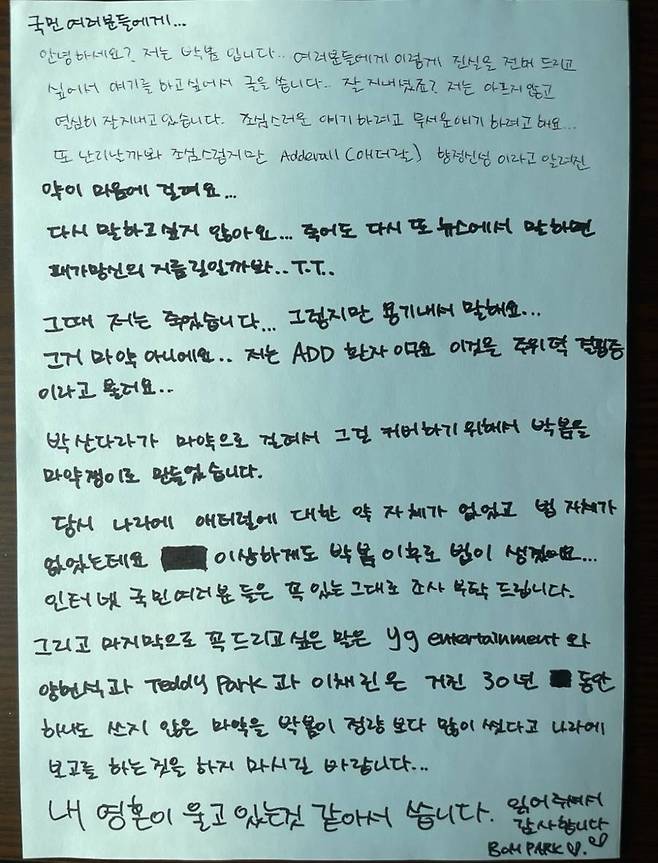 국민 여러분들에게...
안녕하세요? 저는 박봄 입니다.. 여러분들에게 이렇게 진실을 전해 드리고
싶어서 얘기를 하고싶어서 글을 씁니다.. 잘 지내셨죠? 저는 아프지 않고
열심히 잘지내고 있습니다. 조심스러운 얘기 하려고 무서운얘기 하려고 해요...
또 난리날까봐 조심스럽지만 Adderall (애더럴) 향정신성 이라고 알려진
약이 마음에 걸려요...
다시 말하고싶지 않아요... 죽어도 다시 또 뉴스에서 말하면
패가망신의 지름길일까봐..T.T..
그때 저는 죽었습니다... 그렇지만 용기내서 말해요...
그거 마약 아니에요.. 저는 ADD 환자 이구요 이것을 주위력 결핍증
이라고 불러요..
박산다라가 마약으로 걸려서 그걸 커버하기 위해서 박봄을
마약쟁이로 만들었습니다.
당시 나라에 애더럴에 대한 약 자체가 없었고 법 자체가
없었는데요 이상하게도 박봄 이후로 법이 생겼어요...
인터넷 국민여러분 들은 꼭 있는그대로 조사 부탁 드립니다.
그리고 마지막으로 꼭드리고싶은 말은 yg entertainment 와
양현석과 Teddy Park 과 이채린은 거진 30년 동안
하나도 쓰지 않은 마약을 박봄이 정량 보다 많이 썼다고 나라에
보고를 하는것을 하지 마시길 바랍니다...
내 영혼이 울고 있는것 같아서 씁니다. 읽어주셔서
감사합니다
BOM PARK ♡.♡